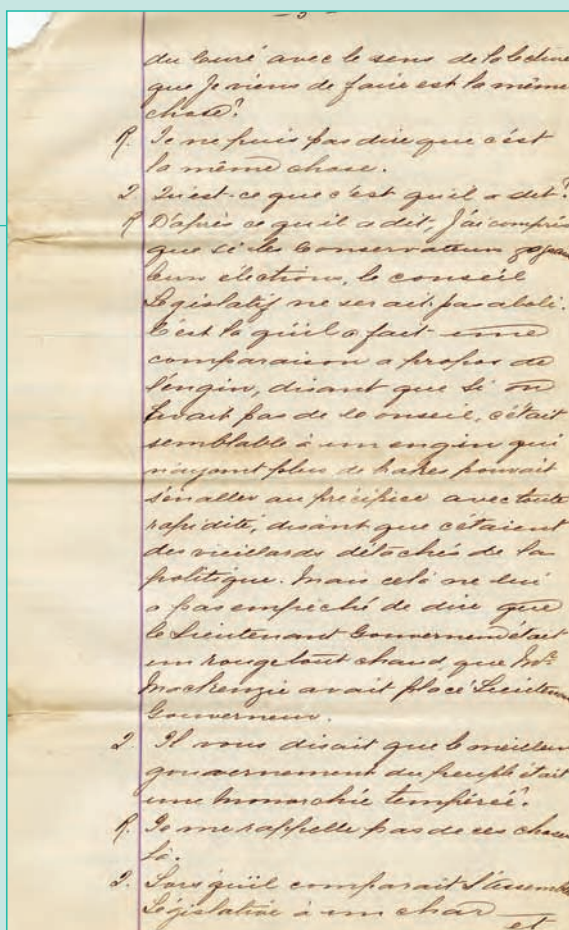 — 5 —
du Curé avec le sens de la lecture
que je viens de faire est la même
chose?
R. Je ne puis pas dire que c'est
la même chose.
Q. Qu'est-ce que c'est qu'il a dit?
R D'après ce qu'il a dit, j'ai compris
que si les Conservateurs
leurs élections, le conseil
Législatif ne serait pas aboli.
C'est là qu'il a fait une
comparaison a propos de
l'engin, disant que si on
avait pas de conseil, c'était
semblable à un engin qui
n'ayant plus de brakes pouvait
s'en aller au précipice avec toute
rapidité, disant que c'étaient
des vieillards détachés de la
politique. Mais celà ne lui
a pas empêché de dire que
le Lieutenant Gouverneur était
un rouge tout chaud, que Mr.
Mackenzie avait placé Lieutenant
Gouverneur.
Q. Il vous disait que le meilleur
gouvernement du peuple était
une monarchie tempérée?
R. Je me rappelle pas de ces choses
là.
Q. Lors qu'il comparait l'assemblé
Législative à un char
et